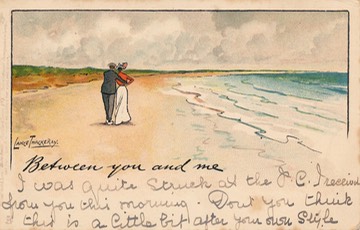 Lance Thackeray.
Between you and me
I was quite struck at the P.C. I received
from you this morning. Dont you think
this is a little bit after your own style